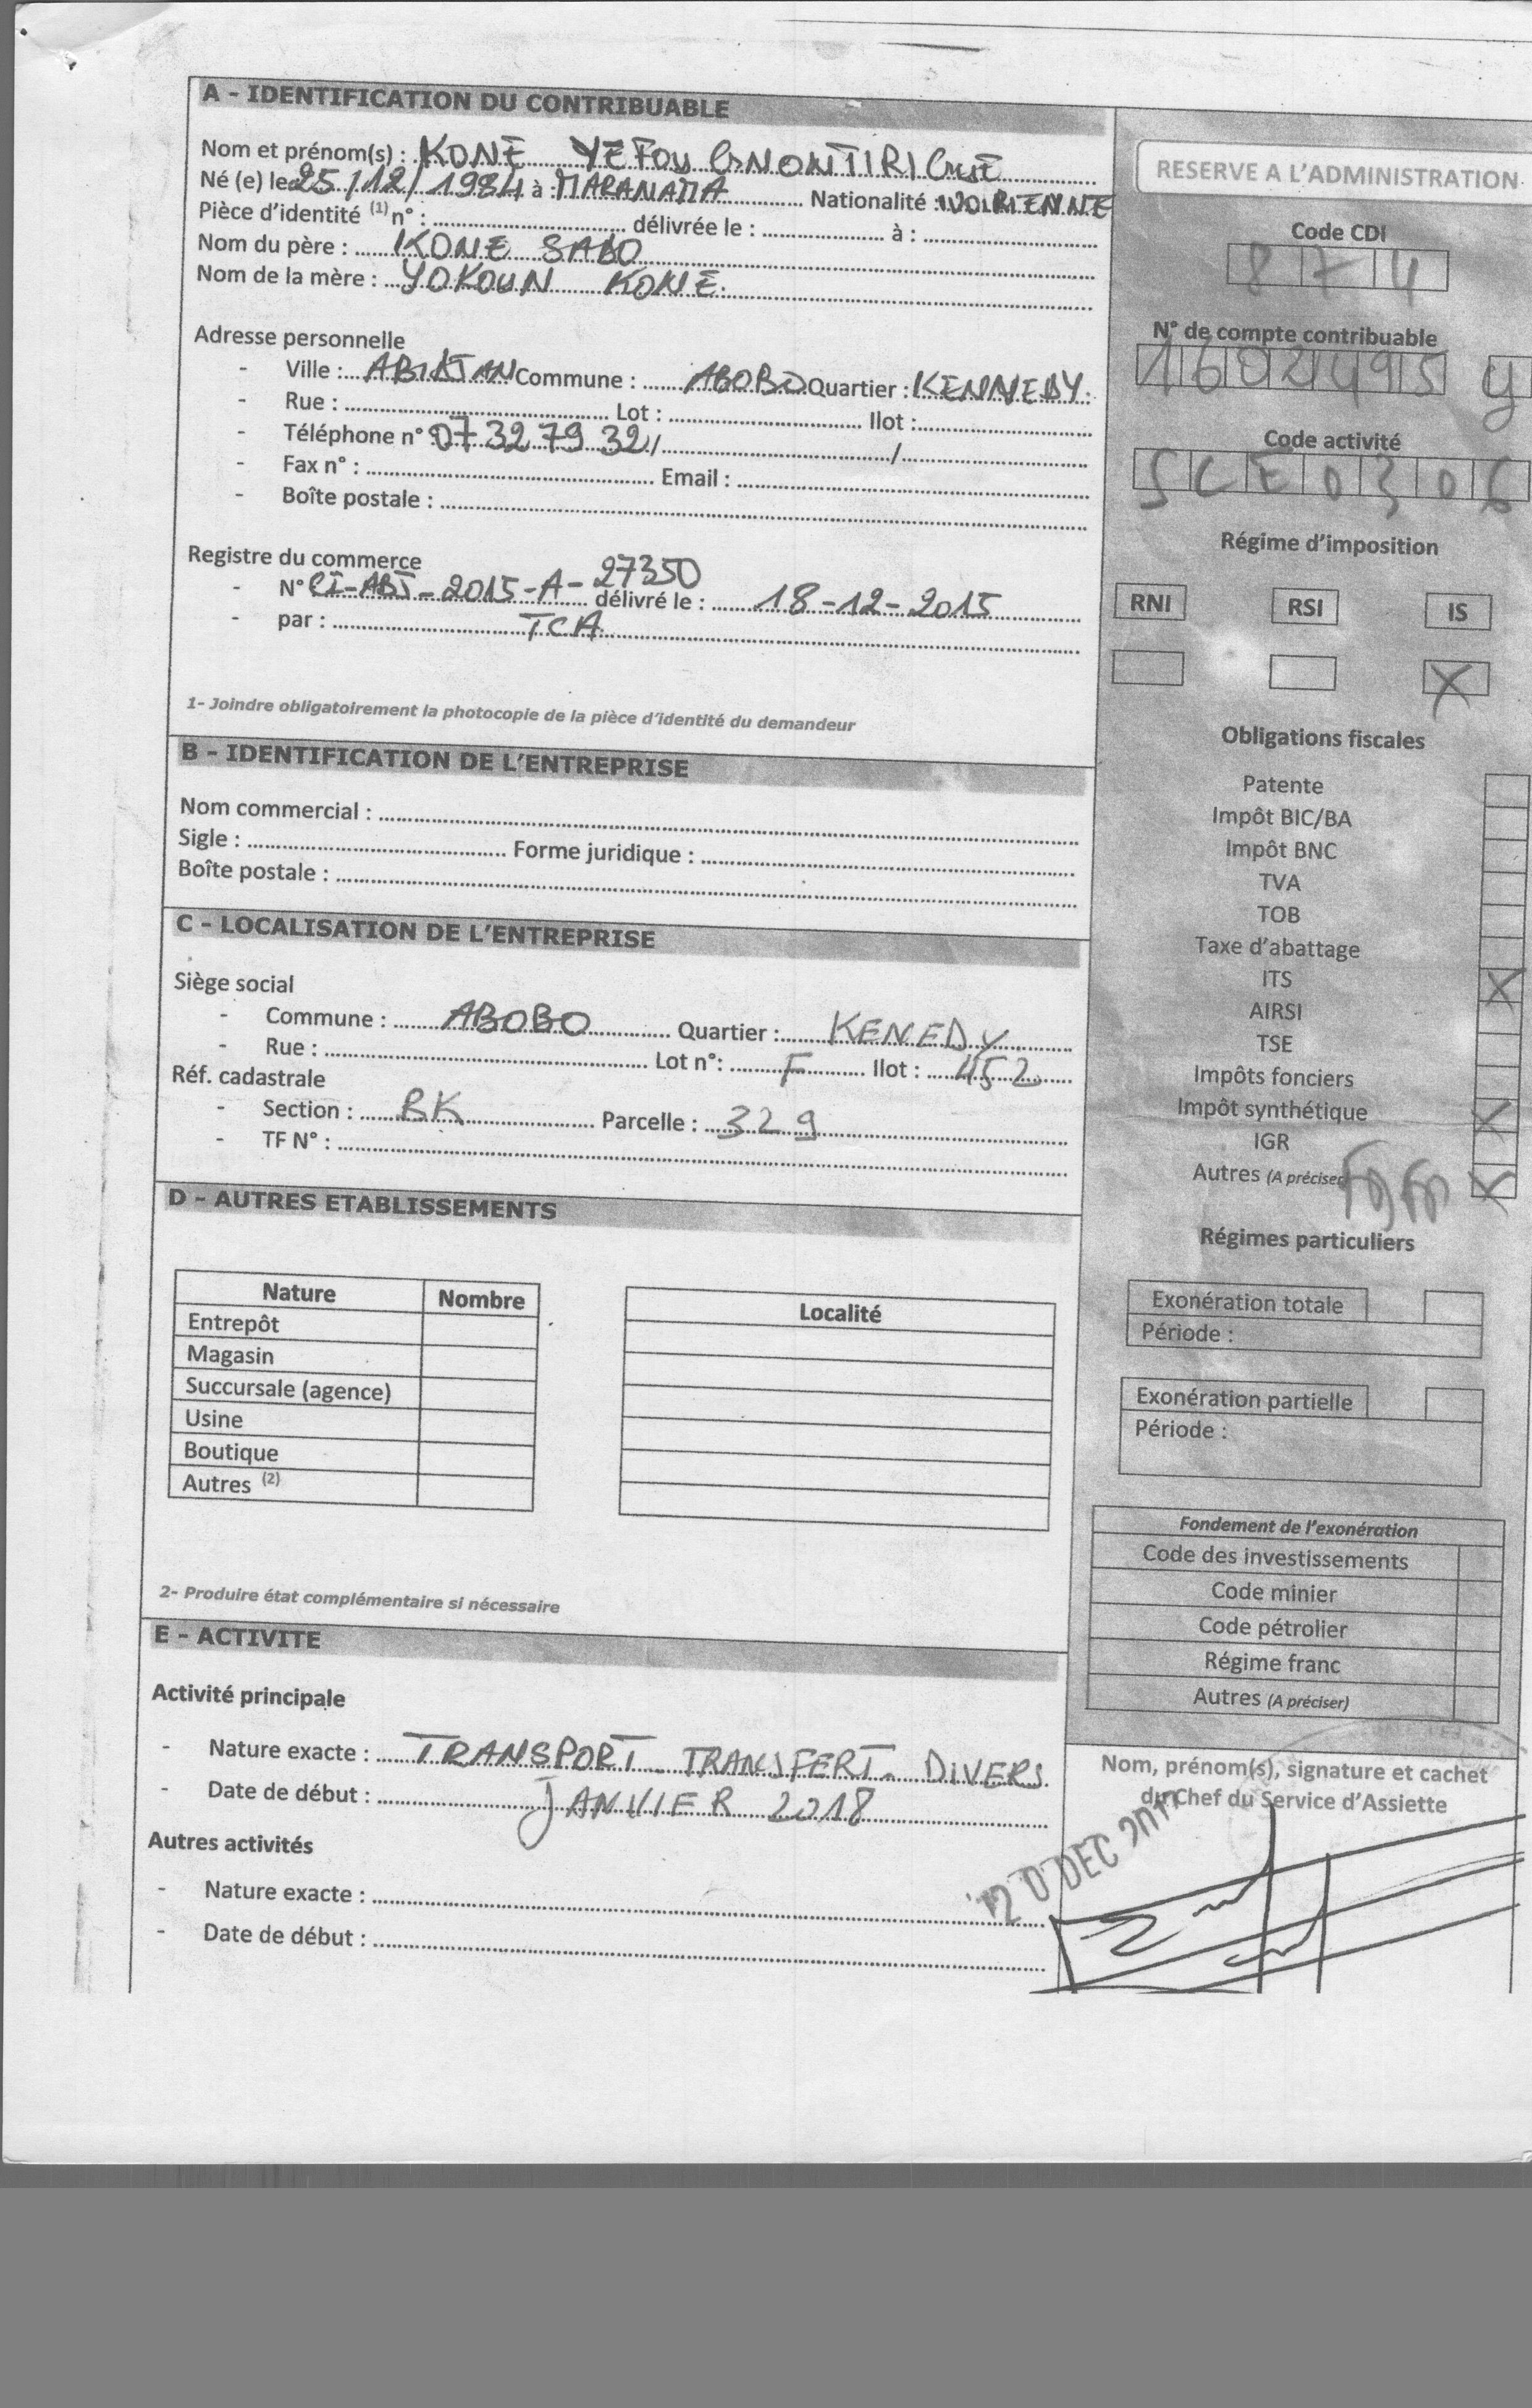 A - IDENTIFICATION DU CONTRIBUABLE
Nom et prénom(s) : KONE YEFOU
Né (e) le 25/12/1984 à : MARANAMA Nationalité : IVOIRIENNE
Pièce d'identité (1) n° : délivrée le : à :
Nom du père : KONE SABO
Nom de la mère : YOKOUN KONE
Adresse personnelle
- Ville : ABIDJAN Commune : ABOBO Quartier : KENNEDY
- Rue : Lot : Ilot :
- Téléphone n° : 07 32 79 32 / /
- Fax n° : Email :
- Boîte postale :
Registre du commerce
- N° CI-ABJ-2015-A-27350 délivré le : 18-12-2015
- par : TCA
1- Joindre obligatoirement la photocopie de la pièce d'identité du demandeur
B - IDENTIFICATION DE L'ENTREPRISE
Nom commercial :
Sigle : Forme juridique :
Boîte postale :
C - LOCALISATION DE L'ENTREPRISE
Siège social
- Commune : ABOBO Quartier : KENEDY
- Rue : Lot n°: F Ilot : 452
Réf. cadastrale
- Section : BK Parcelle : 329
- TF N° :
D - AUTRES ETABLISSEMENTS
Nature Nombre Localité
Entrepôt
Magasin
Succursale (agence)
Usine
Boutique
Autres (2)
2- Produire état complémentaire si nécessaire
E - ACTIVITE
Activité principale
- Nature exacte : TRANSPORT - TRANSFERT - DIVERS
- Date de début : JANVIER 2018
Autres activités
- Nature exacte :
- Date de début :
RESERVE A L'ADMINISTRATION
Code CDI
8 7 4
N° de compte contribuable
1602495 Y
Code activité
SCE0306
Régime d'imposition
RNI RSI IS
X
Obligations fiscales
Patente
Impôt BIC/BA
Impôt BNC
TVA
TOB
Taxe d'abattage
ITS X
AIRSI
TSE
Impôts fonciers
Impôt synthétique X
IGR
Autres (A préciser) X
Régimes particuliers
Exonération totale
Période :
Exonération partielle
Période :
Fondement de l'exonération
Code des investissements
Code minier
Code pétrolier
Régime franc
Autres (A préciser)
Nom, prénom(s), signature et cachet
du Chef du Service d'Assiette
20 DEC